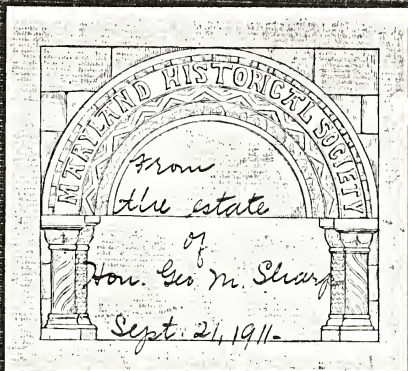 MARYLAND HISTORICAL SOCIETY
From
the estate
of
Hon. Geo. M. Sharp
Sept. 21, 1911-